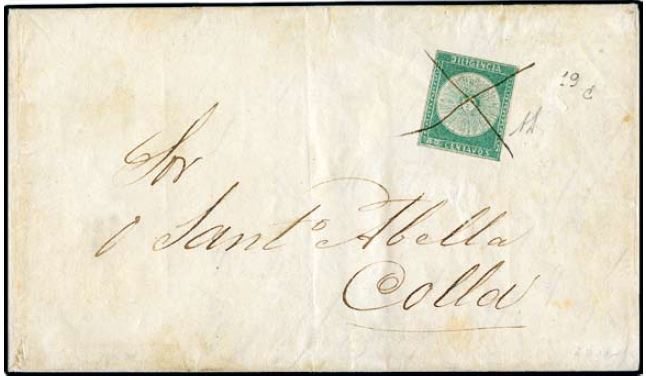 DILIGENCIA
80 CENTAVOS
19
c
Sor
Santo Abella
Colla